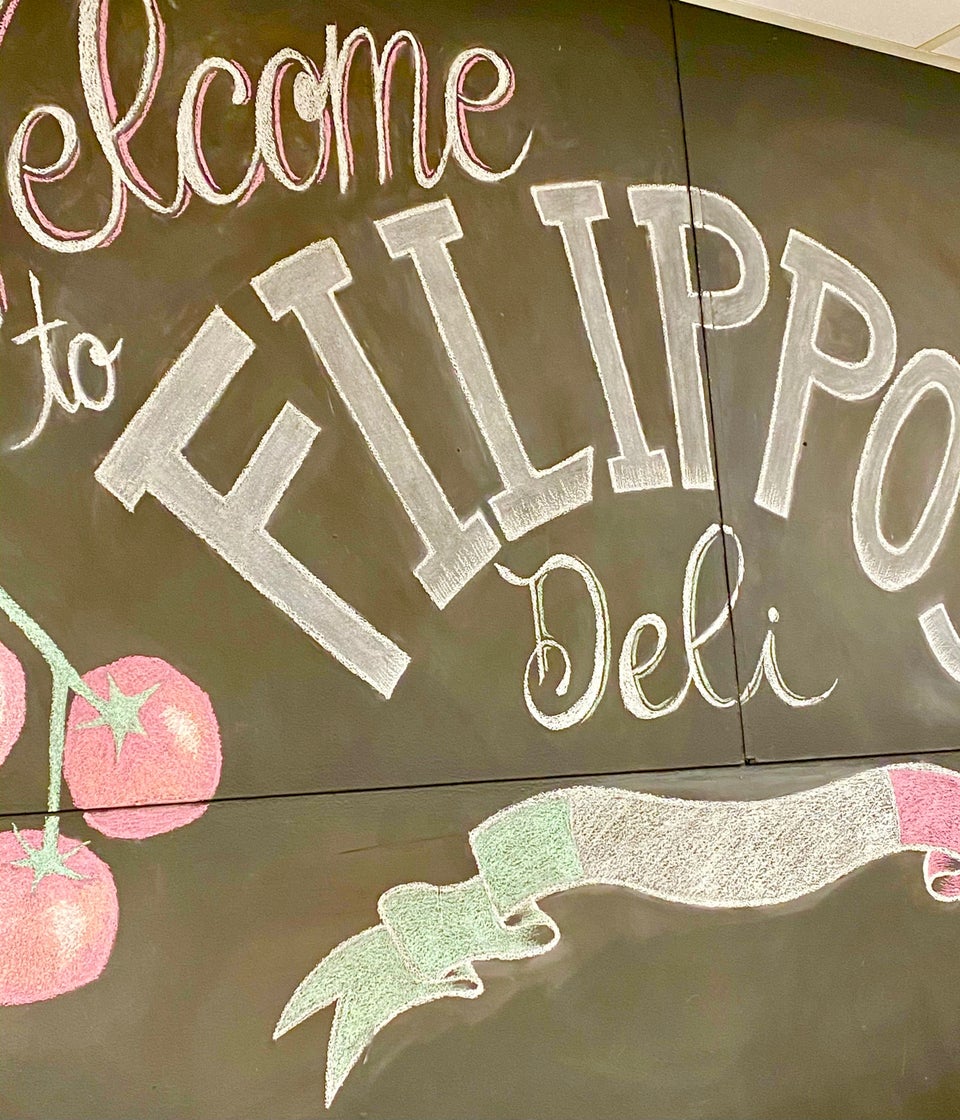 Welcome
to
FILIPPO
Deli